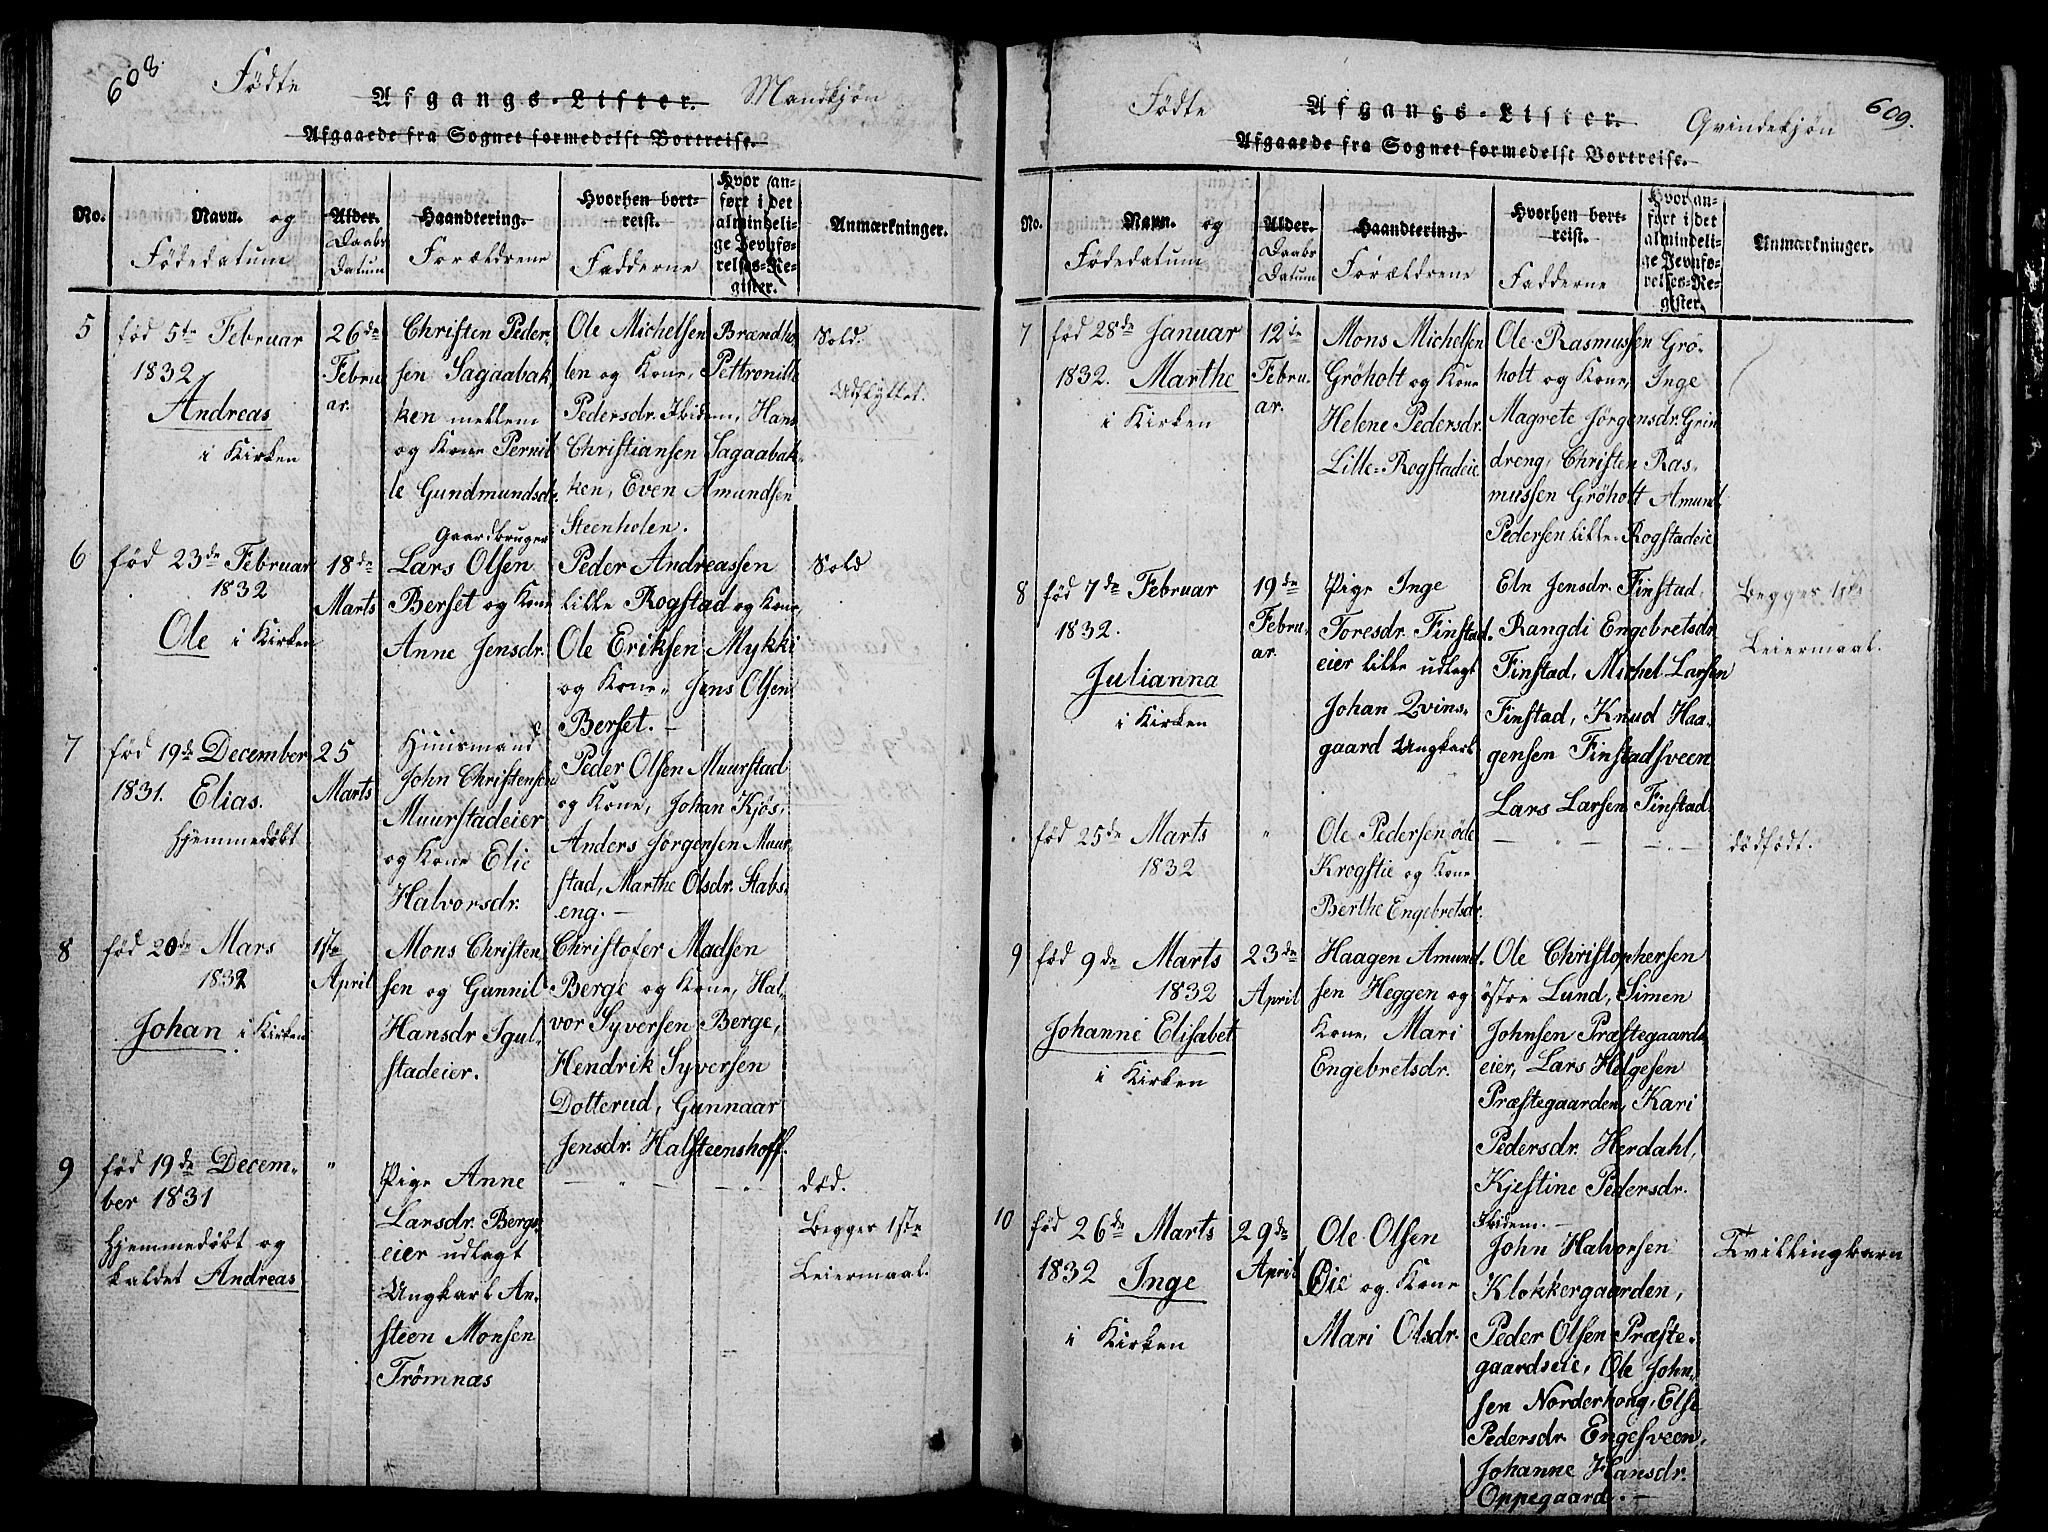 608.
Födte
Afgangs-Lister.
Mandkjøn
Afgaaede fra Sognet formedelst Bortreise.
No.
Navn. og
Födedatum
Alder.
Daabs
Datum
Haandtering.
Forældrene
Hvorhen bort-
reist.
Fadderne
Hvor an-
ført i det
almindeli-
ge Jevnfø-
relses-Re-
gister.
Anmærkninger.
5
fød 5te Februar
1832
Andreas
i Kirken
26de
Febru
ar.
Christen Peder-
sen Sagaabak
ken mellem
og Kone Pernil
le Gundmundsdr.
Ole Michelsen Brændho-
len og Kone, Pettronille
Pedersdr. Ibidem, Hans
Christiansen Sagaabak-
ken, Even Amundsen
Steenholen.
Sold.
Udflyttet.
6
fød 23de Februar
1832
Ole i Kirken
18de
Marts
Gaardbruger
Lars Olsen
Berset og Kone
Anne Jensdr.
Peder Andreassen
lille Rogstad og Kone,
Ole Eriksen Mykki
og Kone, Jens Olsen
Berset.-
Sold
7
fød 19de December
1831. Elias.
Hjemmedøbt
25
Marts
Huusmand
John Christensen
Muurstadeier
og Kone Elie
Halvorsdr.
Peder Olsen Muurstad
og Kone, Johan Kjös,
Anders Jörgensen Muur-
stad, Marthe Olsdr. Stabs-
eng.-
8
fød 20de Mars
1832
Johan i Kirken
1ste
April
Mons Christen
sen og Gunnil
Hansdr Igul-
stadeier.
Christofer Madsen
Berge og Kone, Hal-
vor Syversen Berge,
Hendrik Syversen
Dotterud, Gunnaar
Jensdr. Halsteenshoff.
9
fød 19de Decem-
ber 1831
Hjemmedøbt og
kaldet Andreas
"
Pige Anne
Larsdr. Berge-
eier udlagt
Ungkarl An-
steen Monsen
Trömnæs
- " - - " -
død.
Begges 1ste
Leiermaal.
609.
Födte
Afgangs-Lister.
Qvindekjøn
Afgaaede fra Sognet formedelst Bortreise.
No.
Navn. og
Födedatum
Alder.
Daabs
Datum
Haandtering.
Forældrene
Hvorhen bort-
reist.
Fadderne
Hvor an-
ført i det
almindeli-
ge Jevnfø-
relses-Re-
gister.
Anmærkninger.
7
fød 28de Januar
1832. Marthe
i Kirken
12te
Febru-
ar.
Mons Michelsen
Gröholt og Kone
Helene Pedersdr.
Lille-Rogstadeie
Ole Rasmussen Grö-
holt og Kone, Inge
Magrete Jörgensdr. Grin
dreng, Christen Ras-
mussen Gröholt Amund
Pedersen Lille-Rogstadeie
8
fød 7de Februar
1832.
Julianna
i Kirken
19de
Febru-
ar.
Pige Inge
Toresdr. Finstad-
eier lille udlagt
Johan Qvins-
gaard Ungkarl
Eln Jensdr. Finstad,
Rangdi Engebretsdr
Finstad, Michel Larsen
Finstad, Knud Haa-
gensen Finstadsveen
Lars Larsen Finstad
Begges 1ste
Leiermaal.
fød 25de Marts
1832
"
Ole Pedersen öde
Krogstie og Kone
Berthe Engebretsdr.
- " - - " -
dödfödt.
9
fød 9de Marts
1832
Johanne Elisabet
i Kirken
23de
April
Haagen Amund-
sen Heggen og
Kone, Mari
Engebretsdr.
Ole Christophersen
östre Lund, Simen
Johnsen Præstegaards
eier, Lars Helgesen
Præstegaarden, Kari
Pedersdr. Herdahl,
Kjestine Pedersdr.
Ibidem.-
10
fød 26de Marts
1832 Inge
i Kirken
29de
April
Ole Olsen
Öie og Kone
Mari Olsdr.
John Halvorsen
Klokkergaarden,
Peder Olsen Præste-
gaardseie, Ole John-
sen Norderhong, Else
Pedersdr. Engesveen,
Johanne Hansdr.
Oppegaard.-
Tvillingbarn